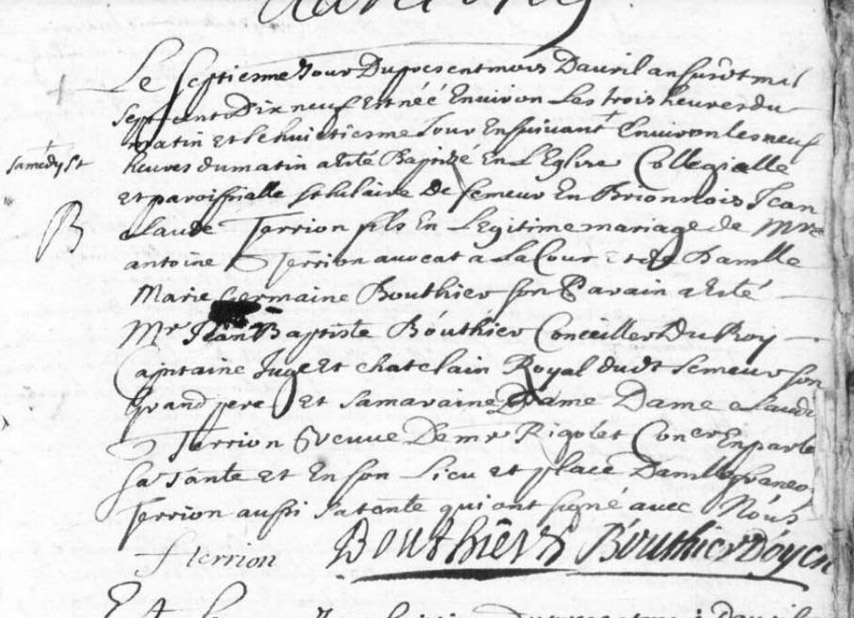 Le septiesme Jour Du present mois Davril an susdt mil
sept cent Dix neuf Est néé Environ Les trois heures du
matin et le huictiesme Jour Ensuivant Environ les neuf
samedy st
heures du matin a esté Baptizé En L'Eglise Collegialle
et paroissialle st hilaire De semeur En Brionnois Jean
B
claude Terrion fils En Legitime mariage de Mre
antoine Terrion avocat a La Cour et de Damlle
Marie germaine Bouthier son Parain a esté
Mr Jean Baptiste Bouthier Conceiller Du Roy
Capitaine Juge et chatelain Royal dudt semeur son
Grand pere et sa maraine Dame claude
Terrion veuve De mr Rigolet Concer En parle
sa tante et En son Lieu et place Damlle
Terrion aussi sa tente qui ont signé avec Nous
f terrion Bouthier Bouthier Doyen